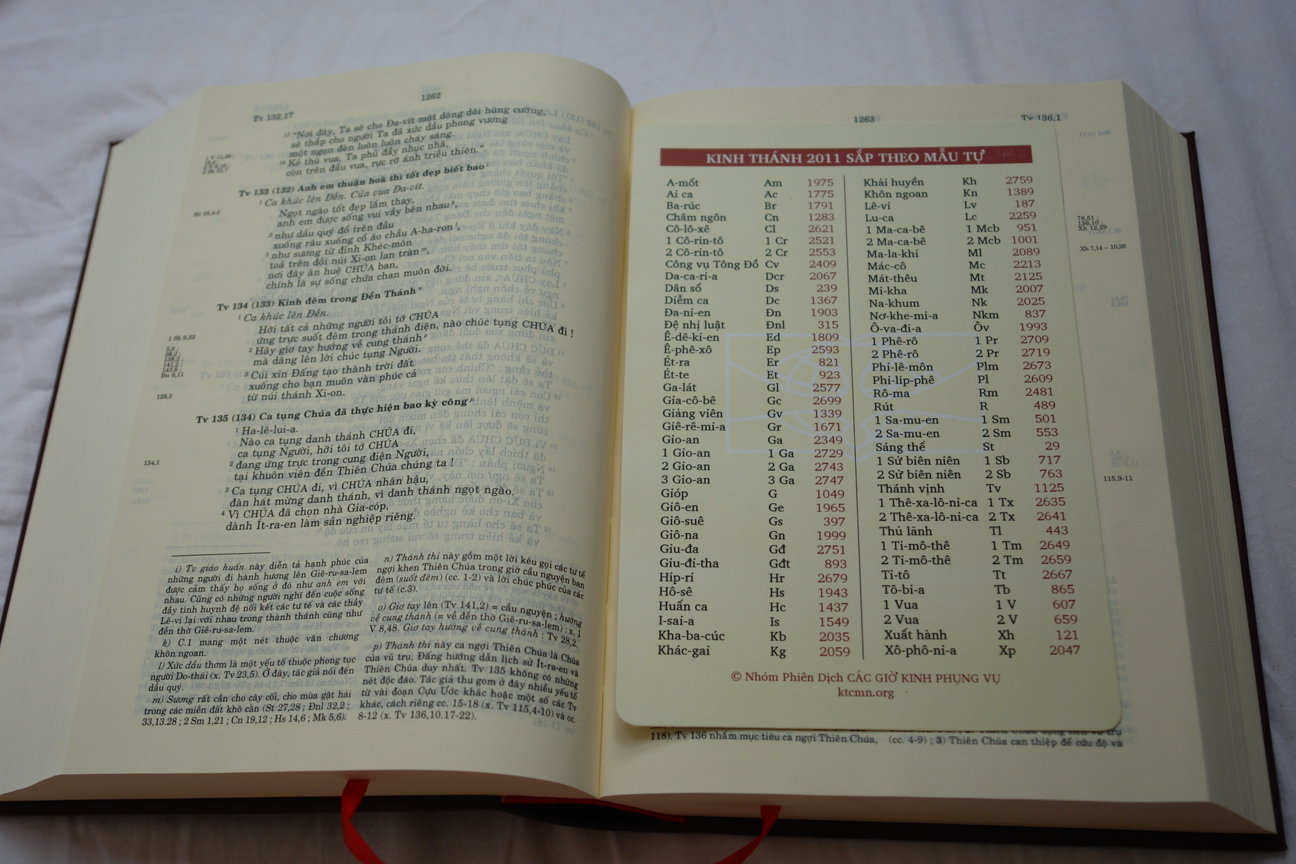 1262
Tv 132,17
¹⁷ "Nơi đây, Ta sẽ cho Đa-vít một dòng dõi hùng cường,
sẽ thắp cho người Ta đã xức dầu phong vương
một ngọn đèn luôn luôn cháy sáng.
¹⁸ Kẻ thù vua, Ta phủ đầy nhục nhã,
còn trên đầu vua, rực rỡ ánh triều thiên."
Tv 133 (132) Anh em thuận hoà thì tốt đẹp biết bao
¹ Ca khúc lên Đền. Của vua Đa-vít.
Ngọt ngào tốt đẹp lắm thay,
anh em được sống vui vầy bên nhau
² như dầu quý đổ trên đầu
xuống râu xuống cổ áo chầu A-ha-ron
³ như sương từ đỉnh Khéc-môn
toả trên đồi núi Xi-on lan tràn
nơi đây ân huệ CHÚA ban,
chính là sự sống chứa chan muôn đời.
Tv 134 (133) Kinh đêm trong Đền Thánh
¹ Ca khúc lên Đền.
Hỡi tất cả những người tôi tớ CHÚA
ứng trực suốt đêm trong thánh điện, nào chúc tụng CHÚA đi !
² Hãy giơ tay hướng về cung thánh
mà dâng lên lời chúc tụng Người.
³ Cúi xin Đấng tạo thành trời đất
xuống cho bạn muôn vàn phúc cả
từ núi thánh Xi-on.
Tv 135 (134) Ca tụng Chúa đã thực hiện bao kỳ công
¹ Ha-lê-lui-a.
Nào ca tụng danh thánh CHÚA đi,
ca tụng Người, hỡi tôi tớ CHÚA
² đang ứng trực trong cung điện Người,
tại khuôn viên đền Thiên Chúa chúng ta !
³ Ca tụng CHÚA đi, vì CHÚA nhân hậu,
đàn hát mừng danh thánh, vì danh thánh ngọt ngào.
⁴ Vì CHÚA đã chọn nhà Gia-cóp,
dành Ít-ra-en làm sản nghiệp riêng.
128,5
134,1
i) Tv giáo huấn này diễn tả hạnh phúc của
những người đi hành hương lên Giê-ru-sa-lem
được cảm thấy họ sống ở đó như anh em với
nhau. Cũng có những người nghĩ đến cuộc sống
đầy tình huynh đệ nối kết các tư tế và các thầy
Lê-vi lại với nhau trong thành thánh cũng như
đền thờ Giê-ru-sa-lem.
k) C.1 mang một nét thuộc văn chương
khôn ngoan.
l) Xức dầu thơm là một yếu tố thuộc phong tục
người Do-thái (x. Tv 23,5). Ở đây, tác giả nói đến
dầu quý.
m) Sương rất cần cho cây cối, cho mùa gặt hái
trong các miền đất khô cằn (St 27,28 ; Đnl 32,2 ;
33,13.28 ; 2 Sm 1,21 ; Cn 19,12 ; Hs 14,6 ; Mk 5,6).
n) Thánh thi này gồm một lời kêu gọi các tư tế
ngợi khen Thiên Chúa trong giờ cầu nguyện ban
đêm (suốt đêm) (cc. 1-2) và lời chúc phúc của các
tư tế (c.3).
o) Giơ tay lên (Tv 141,2) = cầu nguyện ; hướng
về cung thánh (= về đền thờ Giê-ru-sa-lem) : x. 1
V 8,48. Giơ tay hướng về cung thánh : Tv 28,2.
p) Thánh thi này ca ngợi Thiên Chúa là Chúa
của vũ trụ, Đấng hướng dẫn lịch sử Ít-ra-en và
Thiên Chúa duy nhất. Tv 135 không có những
nét độc đáo. Tác giả thu gom ở đây nhiều yếu tố
từ vài đoạn Cựu Ước khác hoặc một số các Tv
khác, cách riêng cc. 15-18 (x. Tv 115,4-10) và cc.
8-12 (x. Tv 136,10.17-22).
1263
Tv 136,1
KINH THÁNH 2011 SẮP THEO MẪU TỰ
A-mốt Am 1975
Ai ca Ac 1775
Ba-rúc Br 1791
Châm ngôn Cn 1283
Cô-lô-xê Cl 2621
1 Cô-rin-tô 1 Cr 2521
2 Cô-rin-tô 2 Cr 2553
Công vụ Tông Đồ Cv 2409
Da-ca-ri-a Dcr 2067
Dân số Ds 239
Diễm ca Dc 1367
Đa-ni-en Đn 1903
Đệ nhị luật Đnl 315
Ê-dê-ki-en Ed 1809
Ê-phê-xô Ep 2593
Ét-ra Er 821
Ét-te Et 923
Ga-lát Gl 2577
Gia-cô-bê Gc 2699
Giảng viên Gv 1339
Giê-rê-mi-a Gr 1671
Gio-an Ga 2349
1 Gio-an 1 Ga 2729
2 Gio-an 2 Ga 2743
3 Gio-an 3 Ga 2747
Gióp G 1049
Giô-en Ge 1965
Giô-suê Gs 397
Giô-na Gn 1999
Giu-đa Gđ 2751
Giu-đi-tha Gđt 893
Híp-ri Hr 2679
Hô-sê Hs 1943
Huấn ca Hc 1437
I-sai-a Is 1549
Kha-ba-cúc Kb 2035
Khác-gai Kg 2059
Khải huyền Kh 2759
Khôn ngoan Kn 1389
Lê-vi Lv 187
Lu-ca Lc 2259
1 Ma-ca-bê 1 Mcb 951
2 Ma-ca-bê 2 Mcb 1001
Ma-la-khi Ml 2089
Mác-cô Mc 2213
Mát-thêu Mt 2125
Mi-kha Mk 2007
Na-khum Nk 2025
Nơ-khe-mi-a Nkm 837
Ô-va-đi-a Ôv 1993
1 Phê-rô 1 Pr 2709
2 Phê-rô 2 Pr 2719
Phi-lê-môn Plm 2673
Phi-líp-phê Pl 2609
Rô-ma Rm 2481
Rút R 489
1 Sa-mu-en 1 Sm 501
2 Sa-mu-en 2 Sm 553
Sáng thế St 29
1 Sử biên niên 1 Sb 717
2 Sử biên niên 2 Sb 763
Thánh vịnh Tv 1125
1 Thê-xa-lô-ni-ca 1 Tx 2635
2 Thê-xa-lô-ni-ca 2 Tx 2641
Thủ lãnh Tl 443
1 Ti-mô-thê 1 Tm 2649
2 Ti-mô-thê 2 Tm 2659
Ti-tô Tt 2667
Tô-bi-a Tb 865
1 Vua 1 V 607
2 Vua 2 V 659
Xuất hành Xh 121
Xô-phô-ni-a Xp 2047
© Nhóm Phiên Dịch CÁC GIỜ KINH PHỤNG VỤ
ktcmn.org
Xh 7,14 – 10,26
115,9-11
118). Tv 136 nhằm mục tiêu ca ngợi Thiên Chúa, (cc. 4-9) ; 3) Thiên Chúa can thiệp để cứu độ và